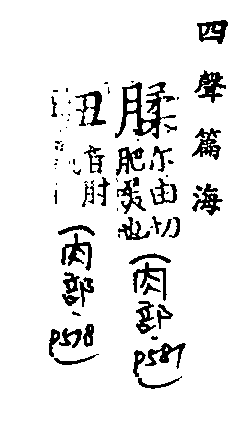 四聲篇海
腬尔由切肥美也(肉部.p587)
音肘(肉部.p578)